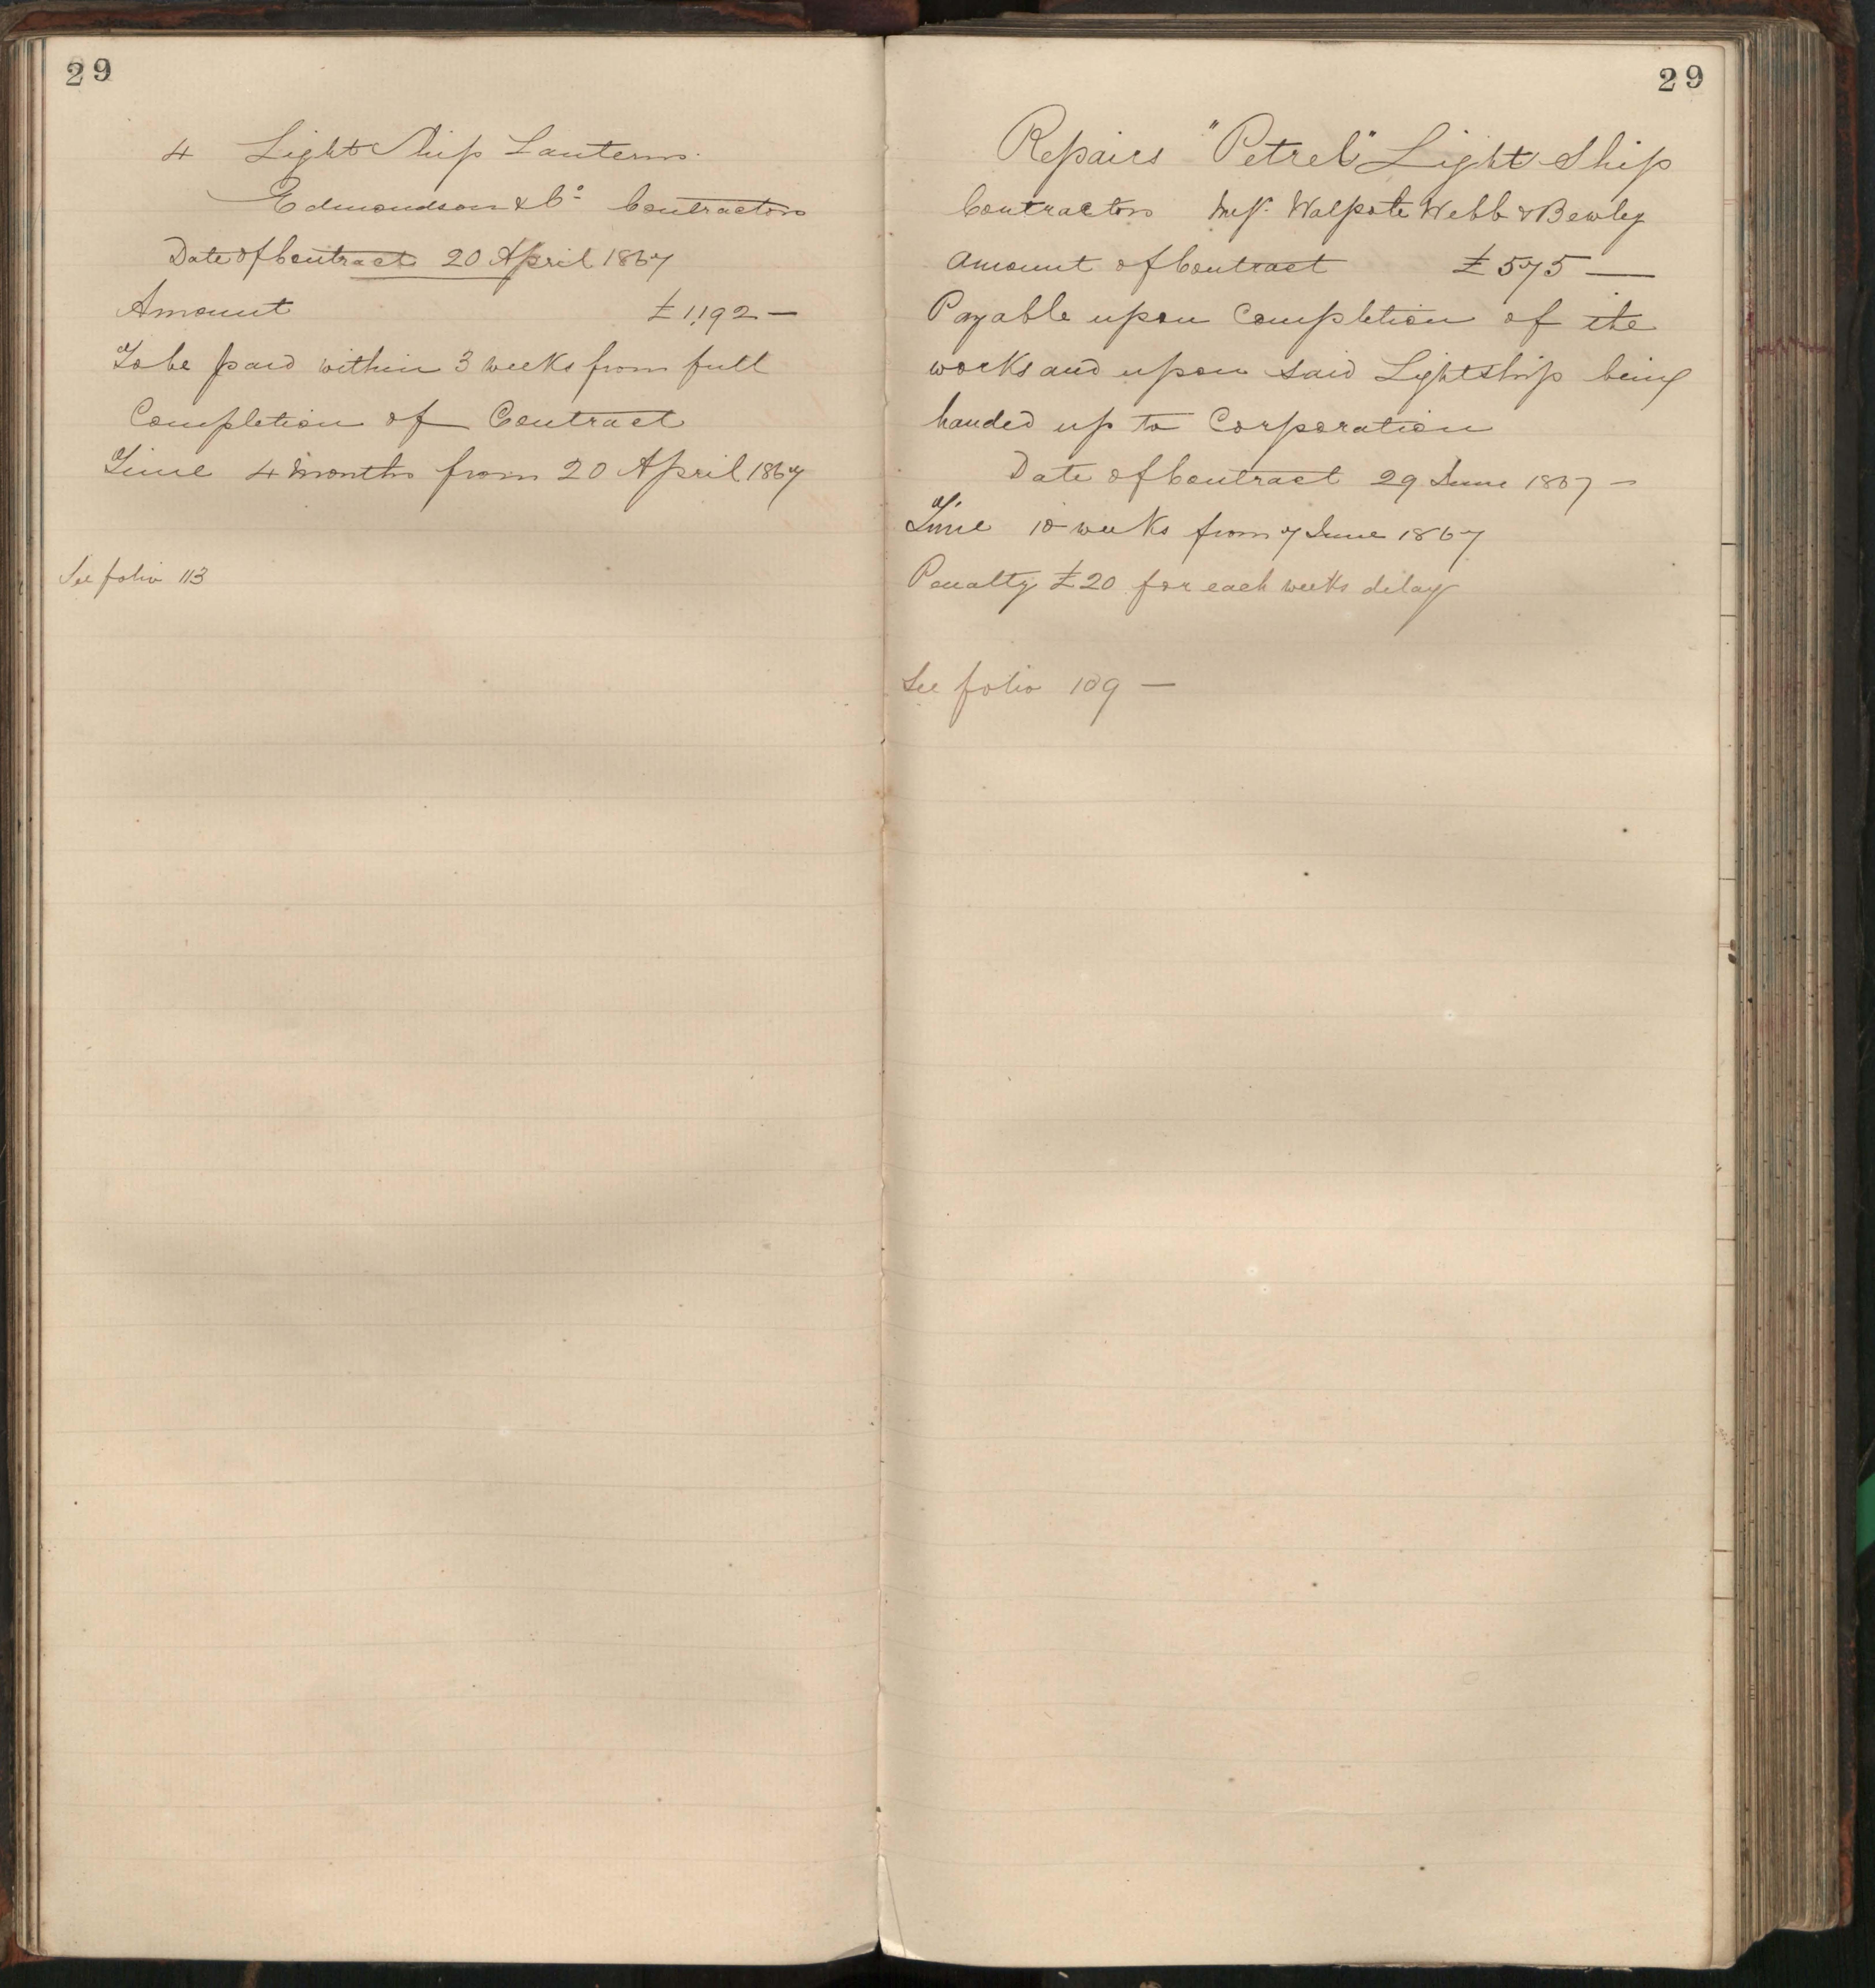 29
4 Light Ship Lanterns.
Edmondson & Co. Contractors
Date of Contract 20 April 1867
Amount £1192 —
To be paid within 3 weeks from full
Completion of Contract
Time 4 Months from 20 April 1867
See folio 113
29
Repairs "Petrel" Light Ship
Contractors Messrs. Walpole Webb & Bewley
Amount of Contract £575 —
Payable upon Completion of the
works and upon said Lightship being
handed up to Corporation
Date of Contract 29 June 1867 —
Time 10 weeks from 7 June 1867
Penalty £20 for each weeks delay
See folio 109 —